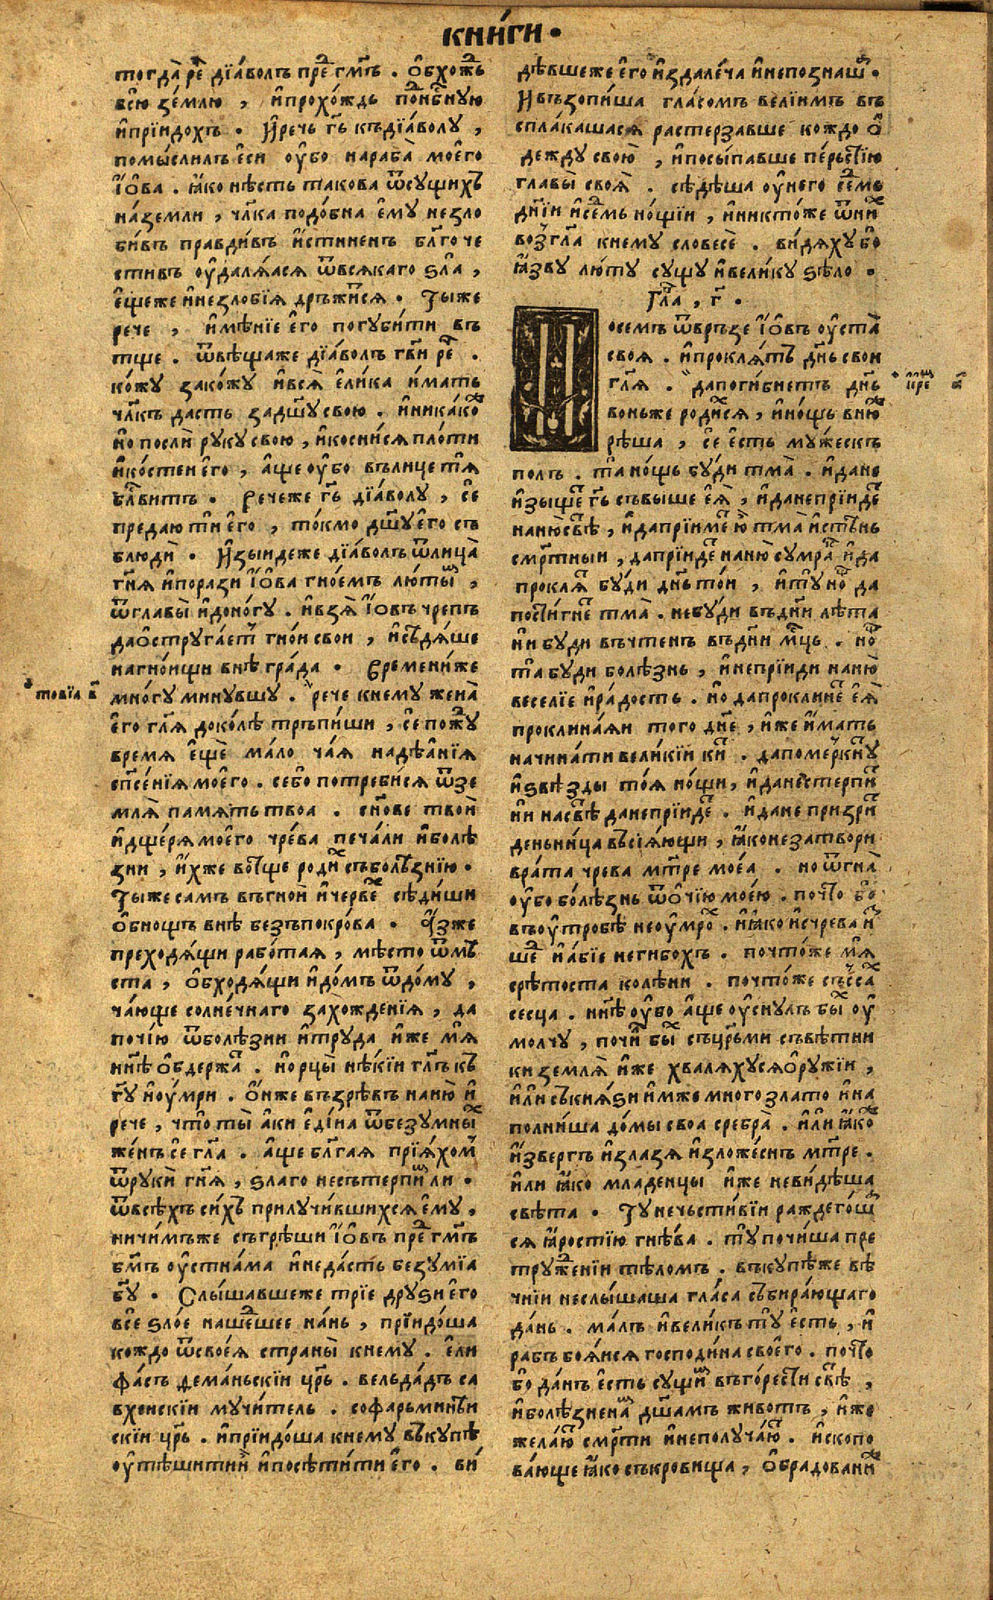 книги ·
тогда рече дїаволъ пред гмъ . ѡбхождь
всю землю , ипрохождь поднбсную
ипрїидохъ . Иречь гь къдїаволу ,
помыслилъ еси оубо нараба моего
іова . ꙗко нѣсть такова ѿсущихъ
наземли , члка подобна ему незло
бивъ правдивъ истиненъ блгоче
стивъ оудалѧѧсѧ ѿвсѧкаго ѕла ,
ещеже инезлобїѧ дръжисѧ . Тыже
рече , имѣнїе его погубити въ
тще . ѿвѣщаже дїаволъ гви рече .
кожу закожу ивсѧ елика имать
члкъ дасть задшу свою . иникако
но посли руку свою , икоснисѧ плоти
икостеи его , аще оубо вълице тѧ
блгвитъ . Речеже гь дїаволу , се
предаю ти его , токмо дшу его съ
блюди . Изыидеже дїаволъ ѿлица
гнѧ ипорази іова гноемъ лютым ,
ѿглавы идоногу . ивзѧ іовъ чрепъ
даостругаетъ гнои свои , исъдѧше
нагноищи внѣ града . Времениже
многу минувшу . рече кнему жена
товїа в
его глѧ доколѣ търпиши , се пожду
время еще мало чаѧ надѣѧнїѧ
спсенїѧ моего . себо потребисѧ ѿзе
млѧ памѧть твоа . снове твои
идщерѧ моего чрева печали иболѣ
зни , ихже вотще родих съболѣзнїю .
Тыже самъ въгнои ичервех сѣдиши
обнощъ внѣ безъпокрова . Азже
преходѧщи работаѧ , мѣсто ѿмѣ
ста , ѡбходѧщи идомъ ѿдому ,
чающе солнечнаго захожденїѧ , да
почїю ѿболѣзни итруда иже мѧ
ннѣ ѡбдержат . норцы нѣкїи глъ къ
гу иоумри . Онже възрѣвъ наню и
рече , что ты аки едина ѿбезумных
женъ се гла . аще блгаѧ прїѧхом
ѿруки гнѧ , ѕлаго нестерпим ли .
ѿвсѣхъ сихъ прилучившихсѧ ему ,
ничимъже съгрѣши іовъ пред гмъ
бмъ оустнама инедасть безумїа
бу . Слышавшеже трїе друѕи его
все ѕлое нашедшее нань , прїидоша
кождо ѿсвоеѧ страны кнему . ели
фасъ деманьскїи црь . вельдадъ са
вхеискїи мучитель . софарьминъи
скїи црь . ипрїидоша кнему въкупѣ
оутѣшитии ипосѣтити его . ви
дѣвшеже его издалеча инепознаша .
Ивъзопиша гласомъ велїимъ въ
сплакашасѧ растерзавше кождо о
дежду свою , ипосыпавше перьстїю
главы своѧ . сѣдѣша оунего седмь
днїи иседмь нощїи , иниктоже ѿних
возгла кнему словесе . видѧху бо
ꙗзву люту сущу ивелику ѕѣло .
Гла , г .
Посемъ ѿвръзе іовъ оуста
своѧ . ипроклѧтъ днь свои
глѧ . дапогибнетъ днь
іере к
воньже родихсѧ , инощь вню
рѣша , се есть мужескъ
полъ . та нощь буди тма . идане
изыщет гь свыше еѧ , иданепрїидет
наню свѣт , идапрїимет ю тма исѣнь
смртныи , дапрїидет наню сумрак ида
проклѧт буди днь тои , иту нощ да
постигнет тма . небуди въдни лѣта
ни буди въчтенъ въдни мць . нощ
та буди болѣзнь , инепрїиди наню
веселїе ирадость . но дапроклинет еѧ
проклинаѧи того дне , иже имать
начинати великїи кит . дапомеркнут
иѕвѣзды тоѧ нощи , иданестерпит
ни насвѣт данепрїидет . идане призрит
деньница въсїѧющи , ꙗконезатвори
врата чрева мтре моеа . но ѿгна
оубо болѣзнь ѿочїю моею . почто бо
въоутробѣ неоумрох . иꙗко исчрева из
шед иабїе негибохъ . почтоже мѧ
срѣтоста колѣни . почтоже съсах
сесца . ннѣ оубо аще оуснулъ бых оу
молчу , почил бых съцрьми съвѣтни
ки землѧ иже хвалѧхусѧоружїи ,
или съкнѧѕи имже многозлато ина
полниша домы своа сребра . или ꙗкож
извергъ излазѧ изложеснъ мтре .
или ꙗко младенцы иже невидѣша
свѣта . Ту нечьстивїи раждегош
сѧ ꙗростїю гнѣва . ту почиша пре
тружении тѣломъ . въкупѣже вѣ
чнїи неслышаша гласа събирающаго
дань . малъ ивеликъ ту есть , и
рабъ боѧисѧ господина своего . почто
бо данъ есть сущим въгорести свѣт ,
иболѣзненым дшамъ животъ , иже
желают смрти инеполучают . ископо
вающе ꙗко съкровища , ѡбрадовани